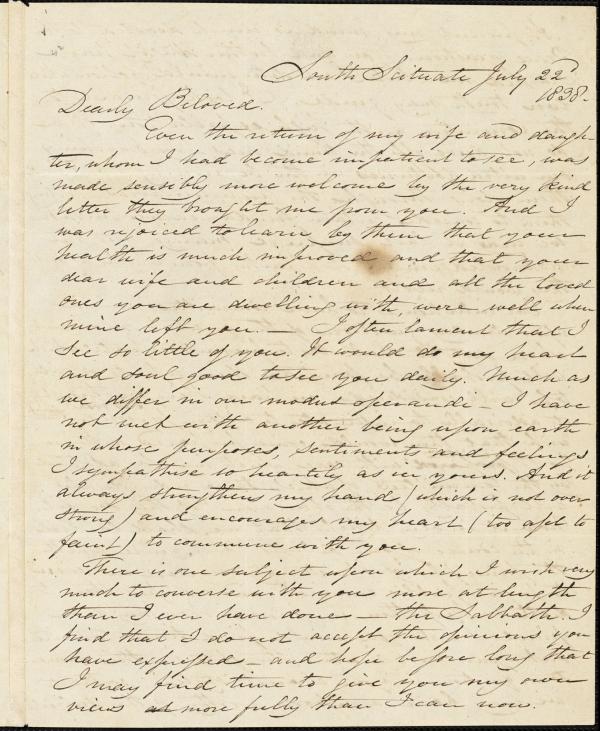 South Scituate July 22d
1838.
Dearly Beloved.
Even the return of my wife and daugh-
ter, whom I had become impatient to see, was
made sensibly more welcome by the very kind
letter they brought me from you. And I
was rejoiced to learn by them that your
health is much improved and that your
dear wife and children and all the loved
ones you are dwelling with, were well when
mine left you. — I often lament that I
see so little of you. It would do my heart
and soul good to see you daily. Much as
we differ in our modus operandi — I have
not met with another being upon earth
in whose purposes, sentiments and feelings
I sympathise so heartily as in yours. And it
always strengthens my hand (which is not over
strong) and encourages my heart (too apt to
faint) to commune with you.
There is one subject upon which I wish very
much to converse with you more at length
than I ever have done — the Sabbath. I
find that I do not accept the opinions you
have expressed — and hope before long that
I may find time to give you my own
views more fully than I can now.